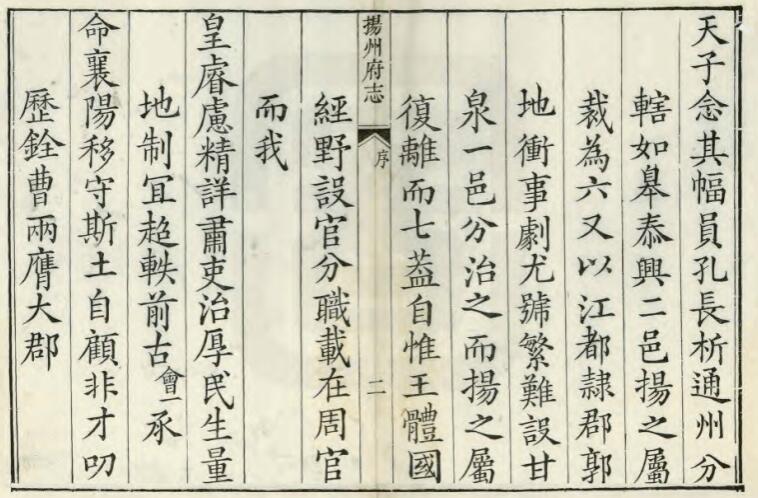 天子念其幅員孔長析通州分
轄如臯泰興二邑揚之屬
裁為六又以江都隸郡郭
地衝事劇尤號繁難設甘
泉一邑分治之而揚之屬
復離而七葢自惟王體國
揚州府志
序
二
經野設官分職載在周官
而我
皇睿慮精詳肅吏治厚民生量
地制冝超軼前古會一承
命襄陽移守斯土自顧非才叨
歷銓曹兩膺大郡